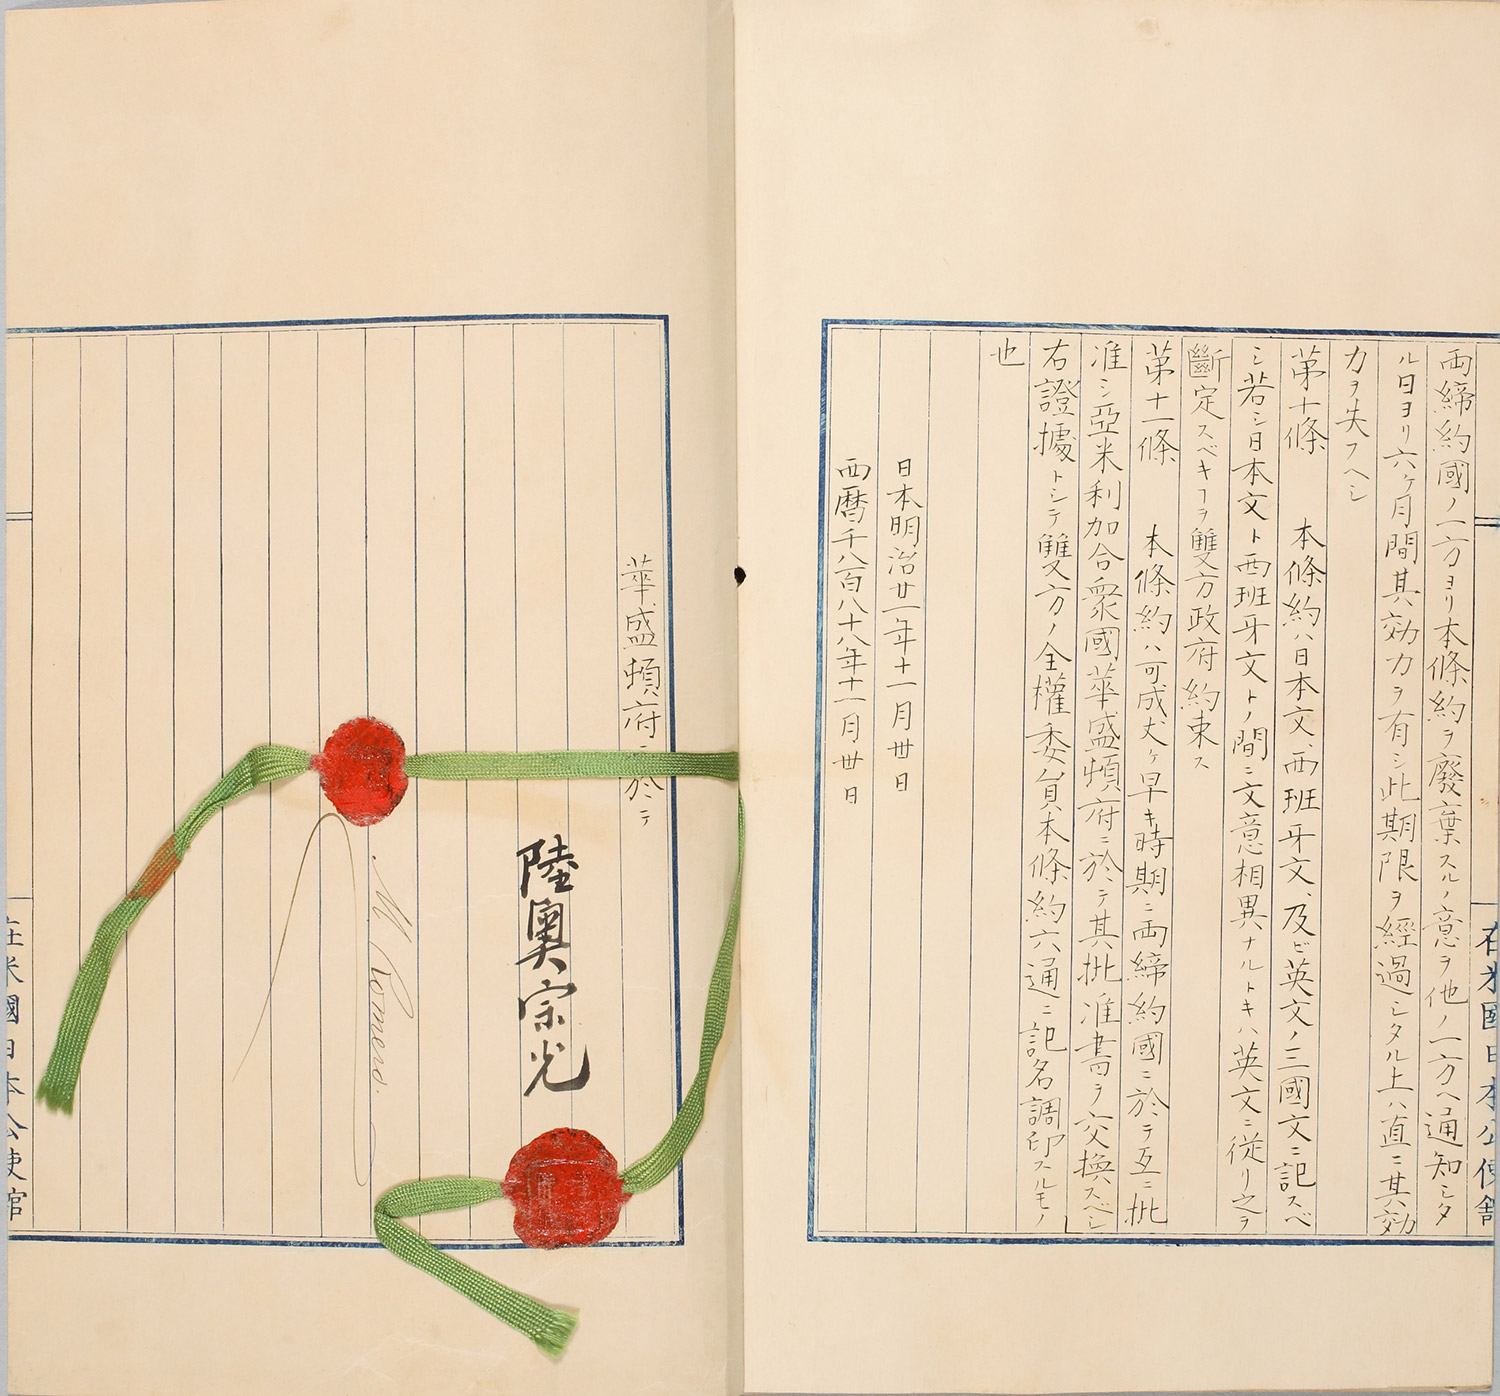 在米國日本公使館
両締約國ノ一方ヨリ本條約ヲ廢棄スルノ意ヲ他ノ一方ヘ通知シタ
ル日ヨリ六ケ月間其効力ヲ有シ此期限ヲ經過シタル上ハ直ニ其効
力ヲ失フヘシ
第十條 本條約ハ日本文、西班牙文、及ビ英文ノ三國文ニ記スベ
シ若シ日本文ト西班牙文トノ間ニ文意相異ナルトキハ英文ニ従リ之ヲ
斷定スベキヿヲ雙方政府約束ス
第十一條 本條約ハ可成丈ケ早キ時期ニ両締約國ニ於テ互ニ批
准シ亞米利加合衆國華盛頓府ニ於テ其批准書ヲ交換スベシ
右證據トシテ雙方ノ全權委員本條約六通ニ記名調印スルモノ
也
日本明治廿一年十一月卅日
西暦千八百八十八年十一月卅日
華盛頓府ニ於テ
陸奥宗光
M Romero.
在米國日本公使館